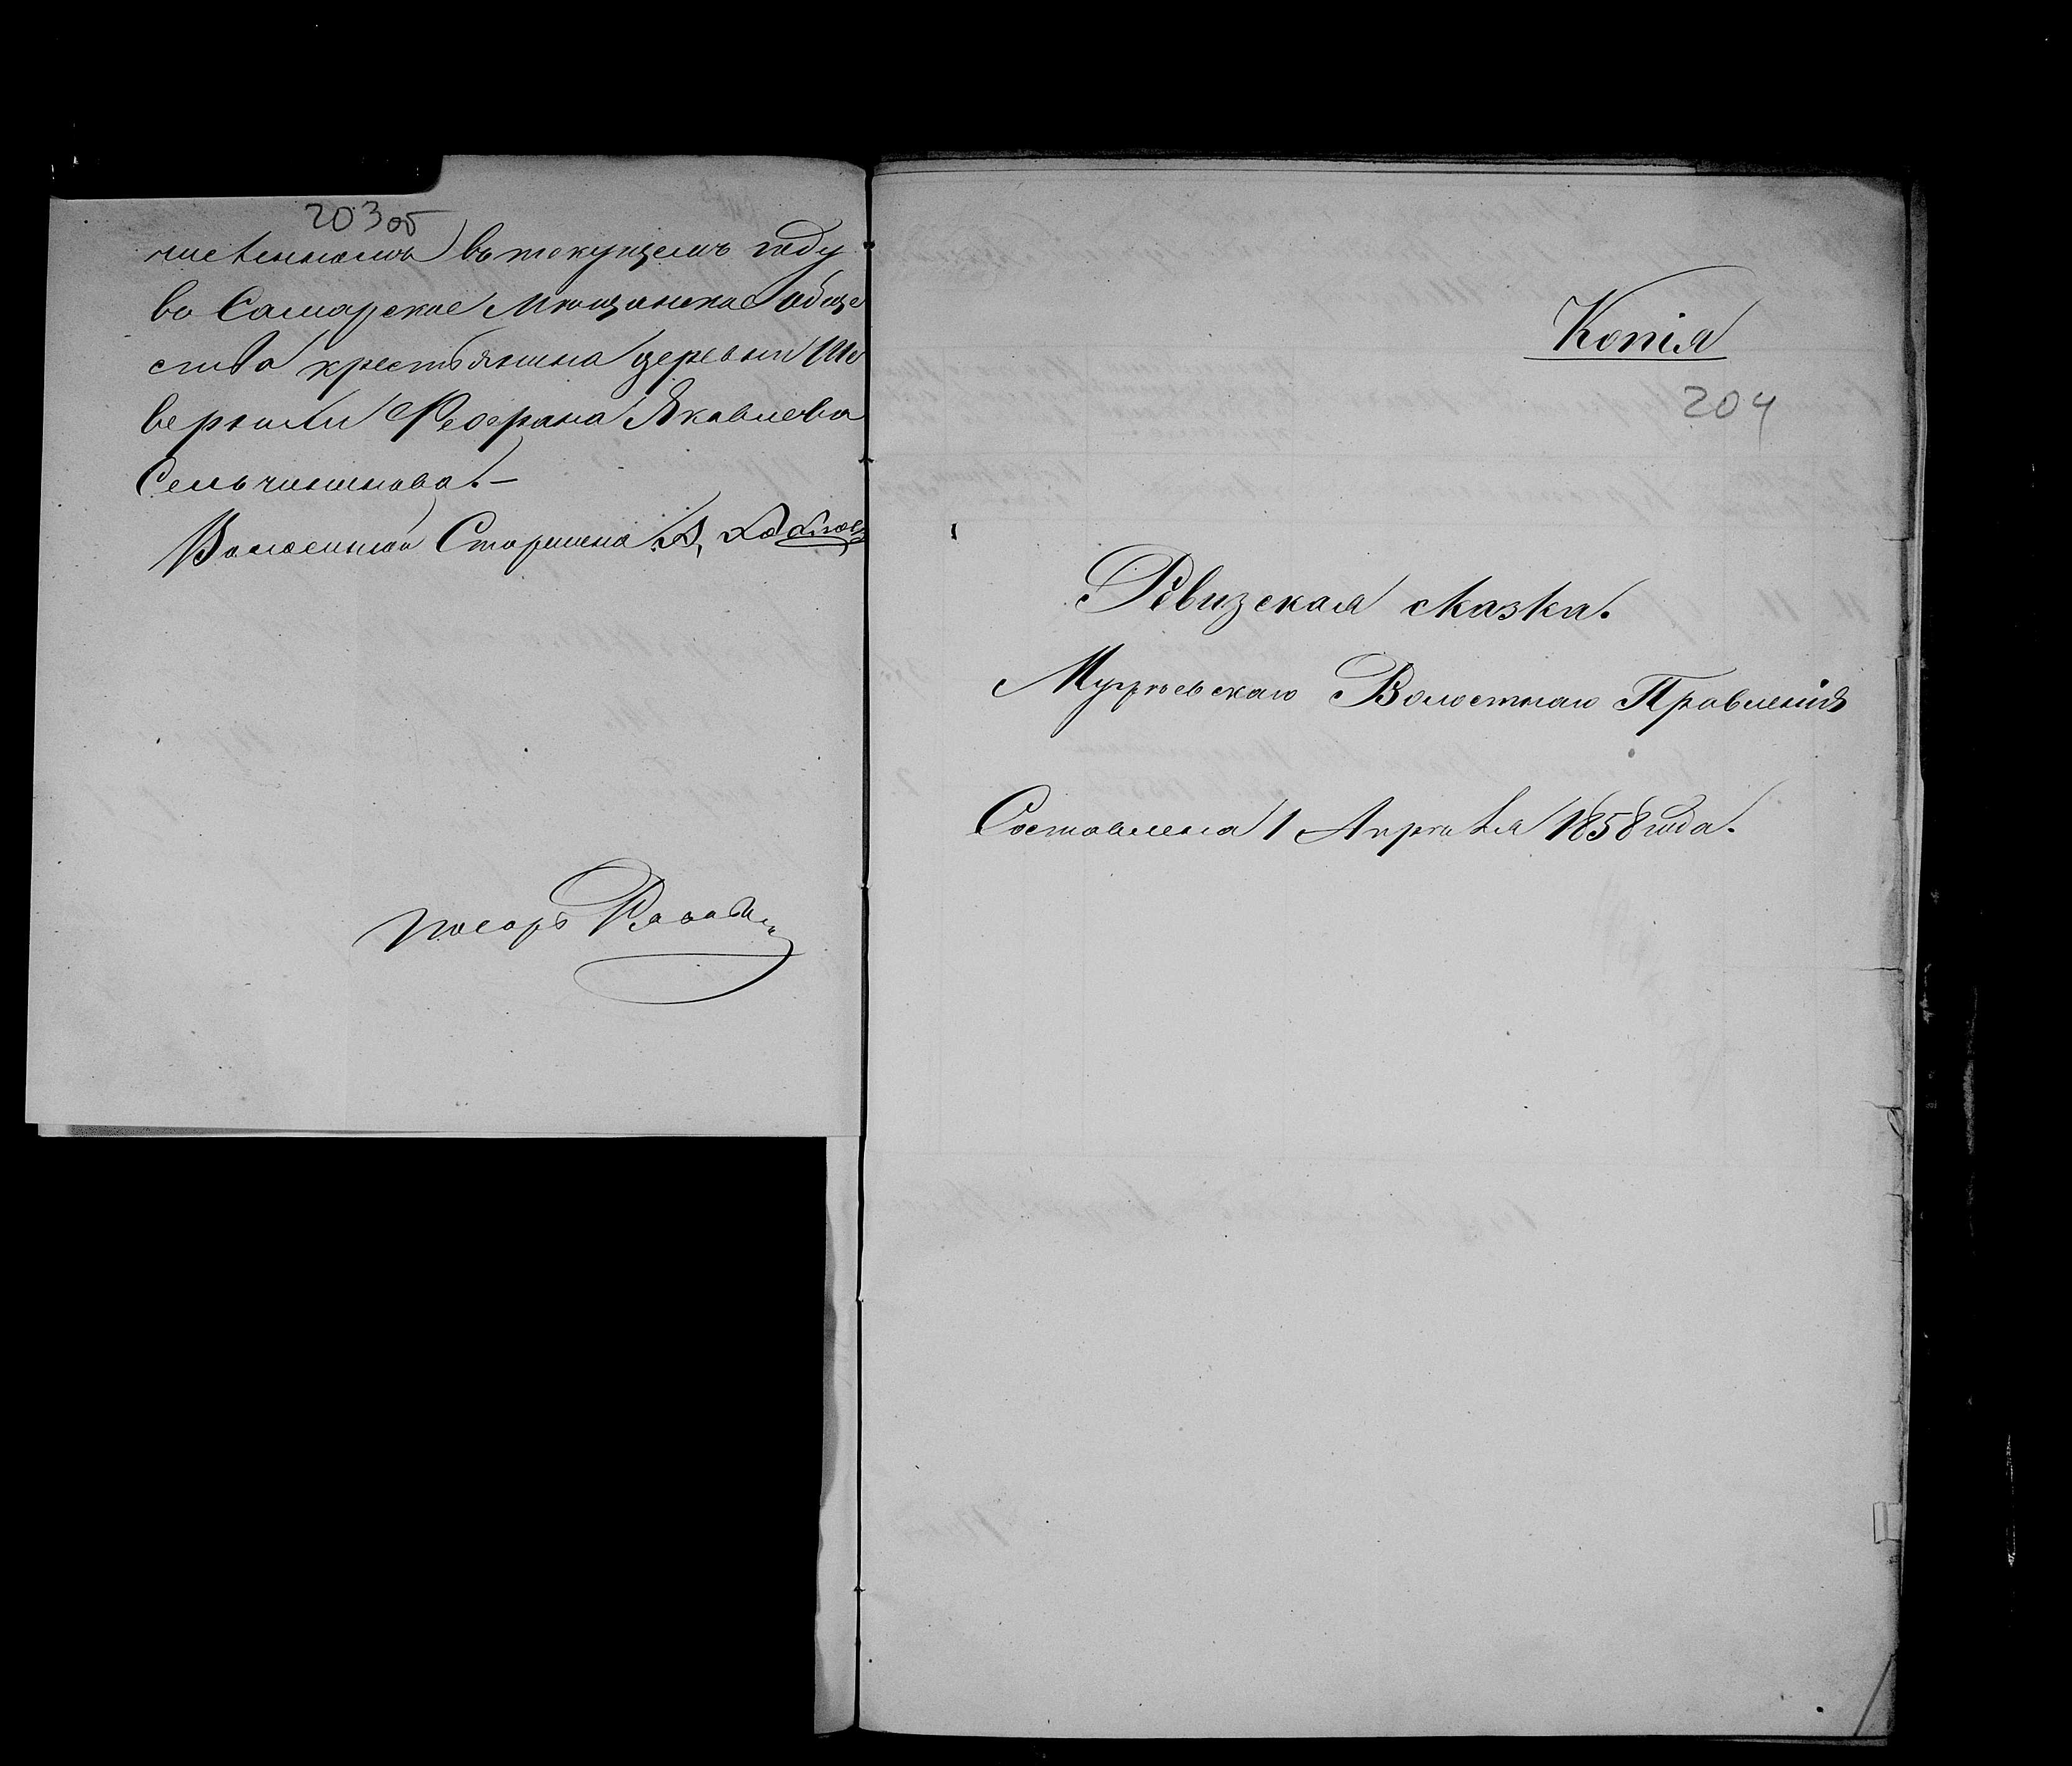 203 об
численномъ въ текущемъ году
въ Самарское Мѣщанское обще
ство крестьянина деревни Ше
вернли Феофана Яковлева
Сельчининова. —
Волостной Старшина
писарь
Копія
204
Ревизская сказка.
Мугрѣевскаго Волостнаго Правленія
Составлена 1 Апрѣля 1858 года.